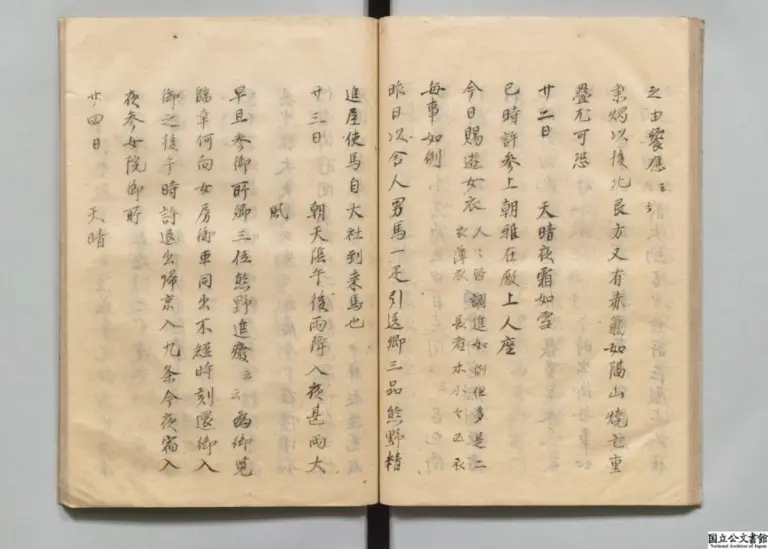 之由饗應云々
秉燭以後北艮方又有赤氣如隔山燒亡重
疊尤可恐
廿二日 天晴夜霜如雪
巳時許参上朝雅在殿上人座
今日賜遊女衣 人々皆調進如例但多是二
衣薄衣 長者 衣
每事如例
昨日以舎人男馬一疋引送卿三品熊野精
進屋使馬自大社到来馬也
廿三日 朝天陰午後雨降入夜甚雨大
風
早旦参御所卿三位熊野進癈云々為御覧
臨幸何向女房御車同出不經時刻還御入
御之後午時許退出帰京入九条今夜宿入
夜参女院御所
廿四日 天晴
国立公文書館
National Archives of Japan